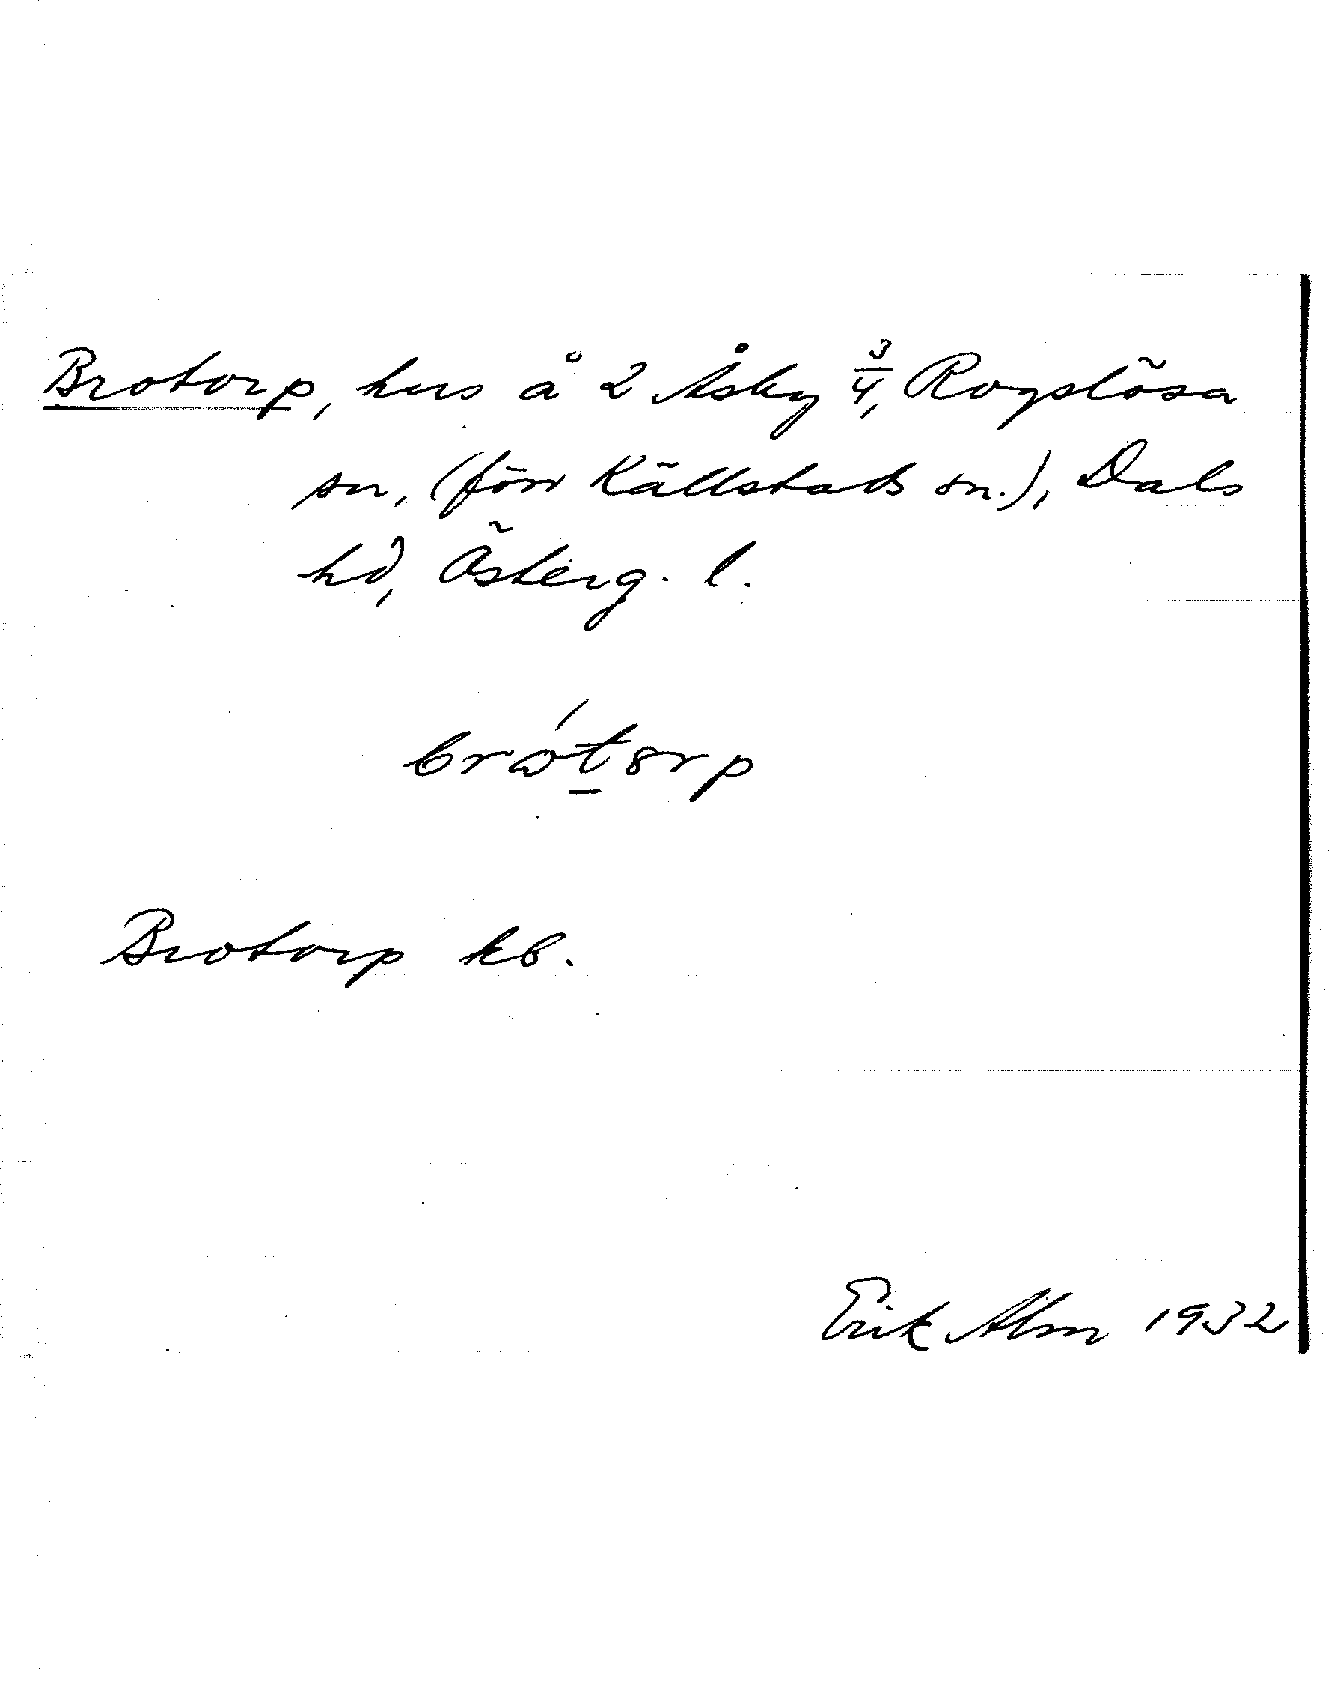 Brotorp, hus å 2 Åsby 3/4, Rogslösa
sn, (förr Källstads sn.), Dals
hd, Österg. l.
brótorp
Brotorp kb.
Erik Alm 1932